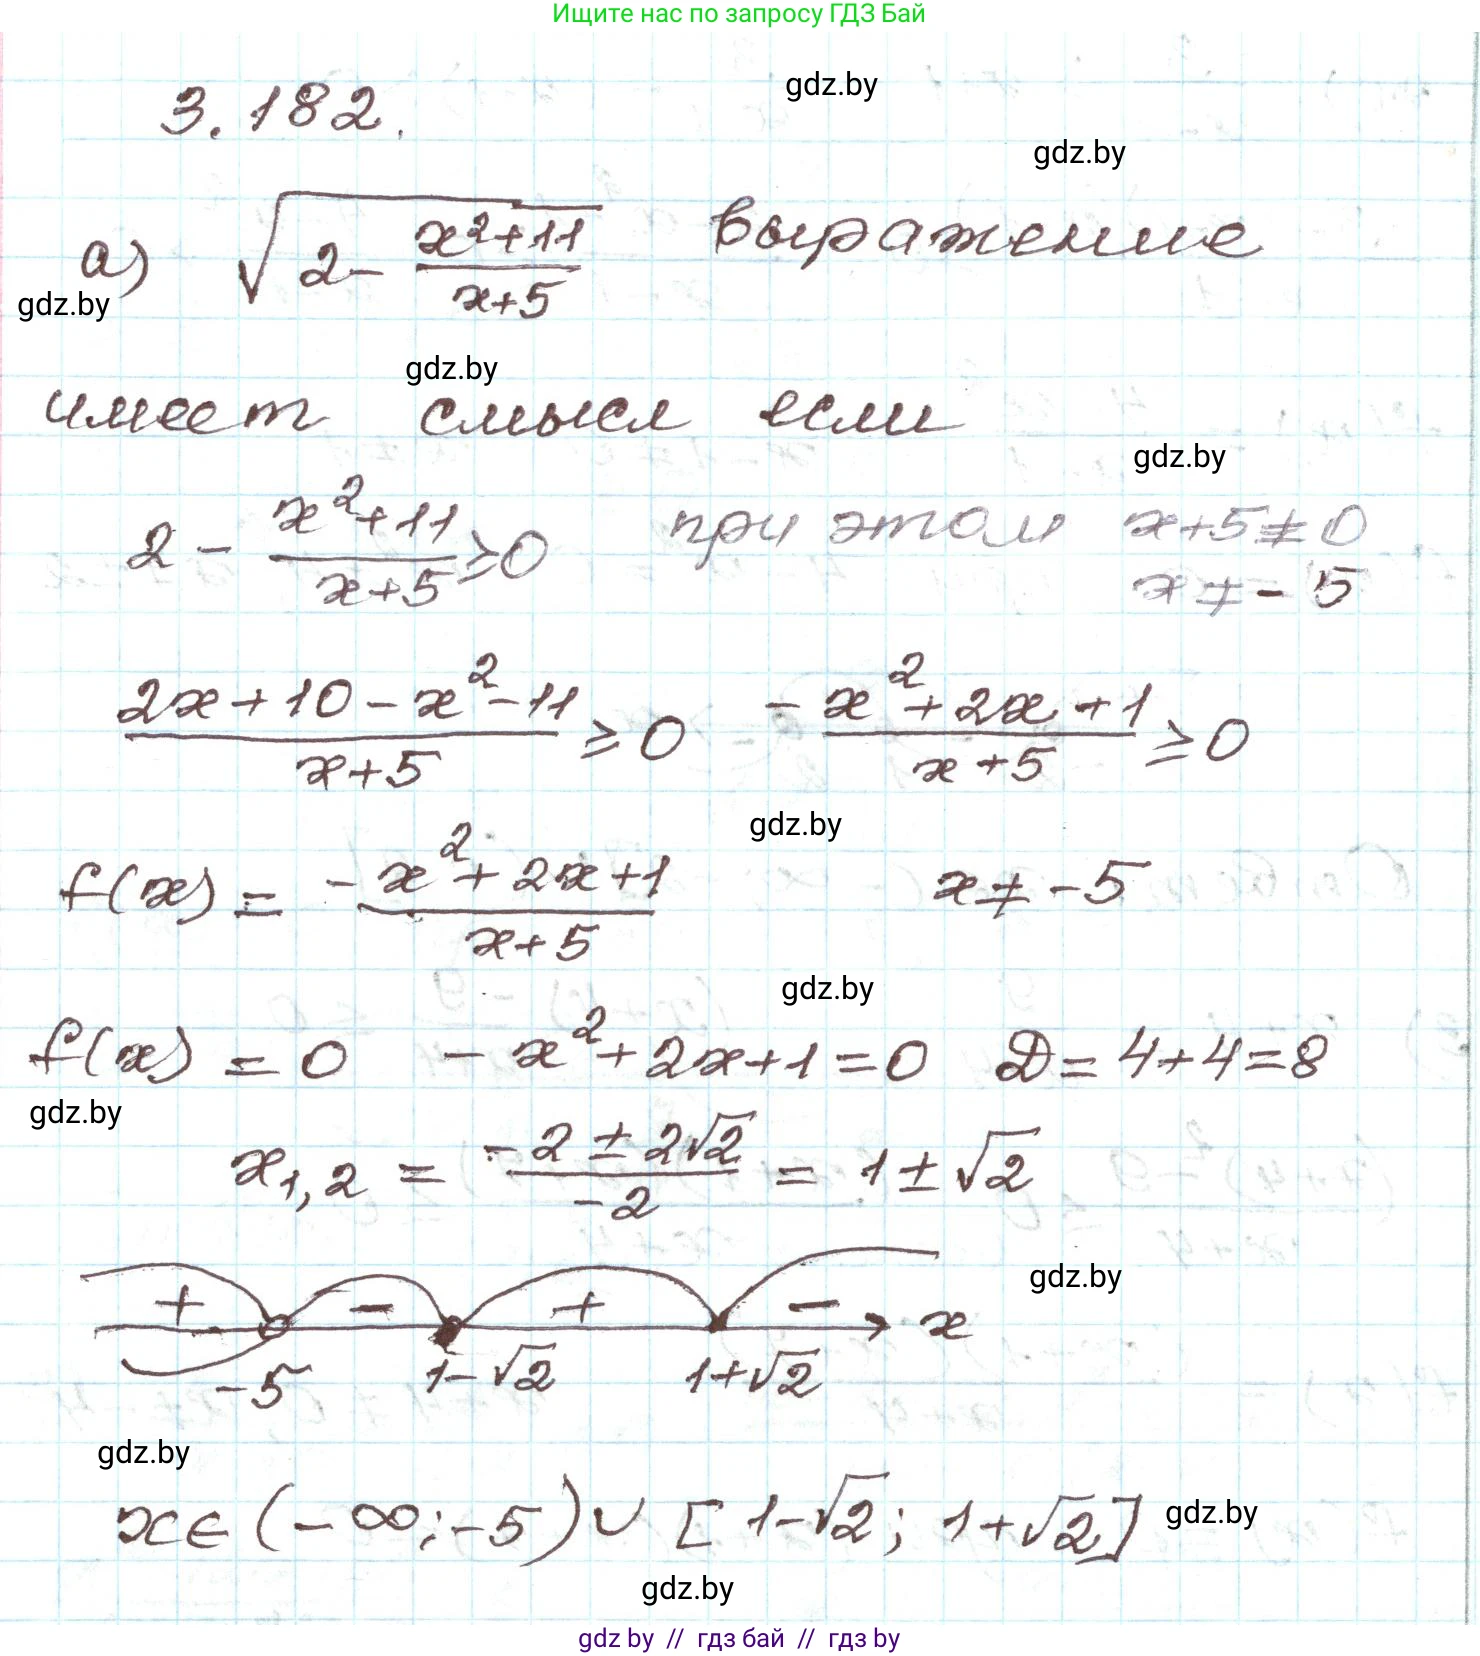 Ищите нас по запросу ГДЗ Бай
gdz.by
3.182.
gdz.by
а) √(2 - (x²+11)/(x+5)) выражение
gdz.by
gdz.by
имеет смысл если
gdz.by
2 - (x²+11)/(x+5) ≥ 0 при этом x+5≠0
x ≠ -5
(2x+10-x²-11)/(x+5) ≥ 0 (-x²+2x+1)/(x+5) ≥ 0
gdz.by
f(x) = (-x²+2x+1)/(x+5) x ≠ -5
gdz.by
f(x) = 0 -x²+2x+1=0 D=4+4=8
gdz.by
x₁,₂ = (-2 ± 2√2)/(-2) = 1±√2
gdz.by
+ - + - x
-5 1-√2 1+√2
gdz.by
x∈(-∞;-5)∪[1-√2; 1+√2]
gdz.by
gdz.by
gdz by // гдз бай // гдз by